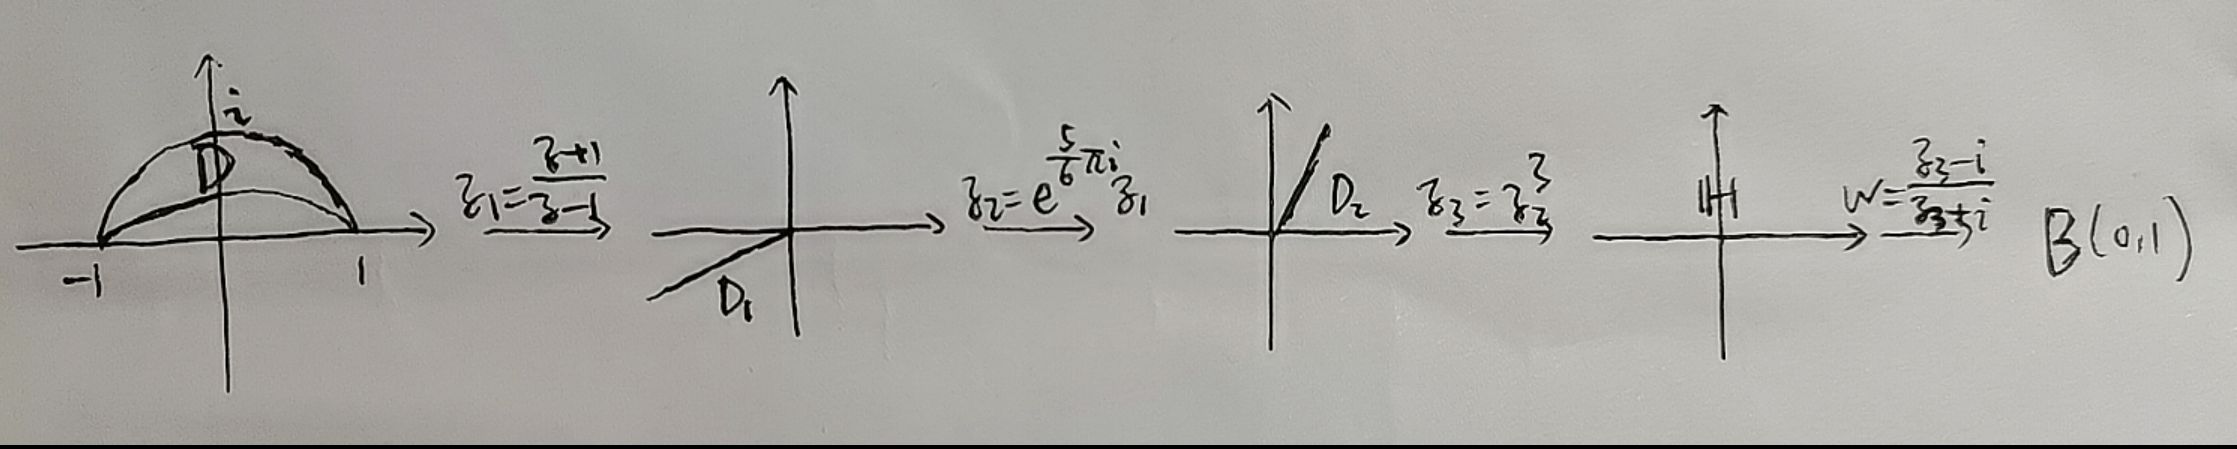 i
D
-1 1
z₁ = (z+1)/(z-1)
D₁
z₂ = e^{5/6 πi} z₁
D₂
z₃ = z₂³
ℍ
w = (z₃-i)/(z₃+i)
B(0,1)